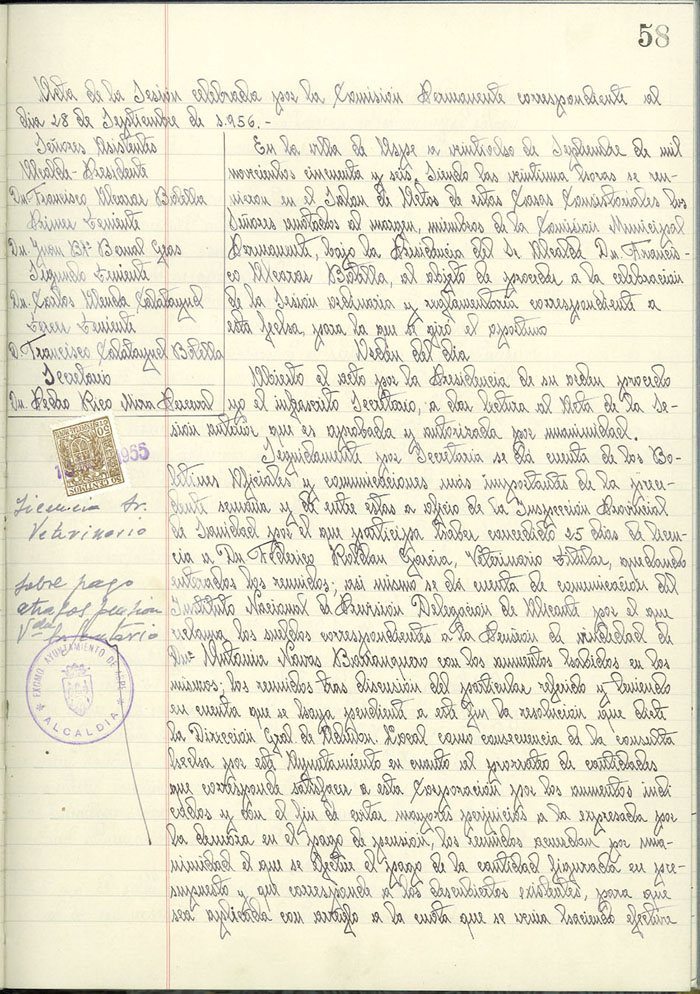 58
Acta de la Sesión celebrada por la Comisión Permanente correspondiente al
dia 28 de Septiembre de 1.956.-
Señores Asistentes
Alcalde-Presidente
Dn. Francisco Alcaraz Botella
Primer Teniente
Dn. Juan Bta Bernal
Segundo Teniente
Dn. Carlos Calatayud
Tercer Teniente
D. Francisco Calatayud Botella
Secretario
Dn. Pedro Rico Mira
En la villa de Aspe a veintiocho de Septiembre de mil
novecientos cincuenta y seis, siendo las veintiuna horas se reu-
nieron en el Salon de Actos de estas Casas Consistoriales los
Señores anotados al margen, miembros de la Comisión Municipal
Permanente, bajo la Presidencia del Sr Alcalde Dn. Francis-
co Alcaraz Botella, al objeto de proceder a la celebración
de la Sesión ordinaria y reglamentaria correspondiente a
esta fecha, para la que se giró el oportuno
Orden del dia
Abierto el acto por la Presidencia de su orden procedo
yo el infrascrito Secretario, a dar lectura al Acta de la Se-
sion anterior que es aprobada y autorizada por unanimidad.
Seguidamente por Secretaria se dá cuenta de los Bo-
letines Oficiales y comunicaciones más importantes de la prece-
dente semana y de entre estas a oficio de la Inspección Provincial
de Sanidad por el que participa haber concedido 25 dias de licen-
cia a Dn. Federico Roldan Garcia, Veterinario Titular, quedando
enterados los reunidos; asi mismo se dá cuenta de comunicación del
Instituto Nacional de Prevision Delegacion de Alicante por el que
reclama los sueldos correspondientes a la Pensión de viudedad de
Dña Antonia Navas Barranquero con los aumentos habidos en los
mismos; los reunidos tras discusión del particular referido y teniendo
en cuenta que se haya pendiente a este fin la resolución que dicte
la Dirección Gral de Admon. Local como consecuencia de la consulta
hecha por este Ayuntamiento en cuanto al prorrateo de cantidades
que corresponde satisfacer a esta Corporación por los aumentos indi
cados y con el fin de evitar mayores perjuicios a la expresada por
la demora en el pago de pensión, los reunidos acuerdan por una-
nimidad el que se efectue el pago de la cantidad figurada en pre-
supuesto y que corresponde a los descubiertos existentes, para que
sea aplicada con arreglo a la cuota que se venia haciendo efectiva
50 CENTIMOS
1955
Licencia Sr.
Veterinario
Sobre pago
atrasos pension
Vda
EXCMO AYUNTAMIENTO DE ASPE
* ALCALDIA *